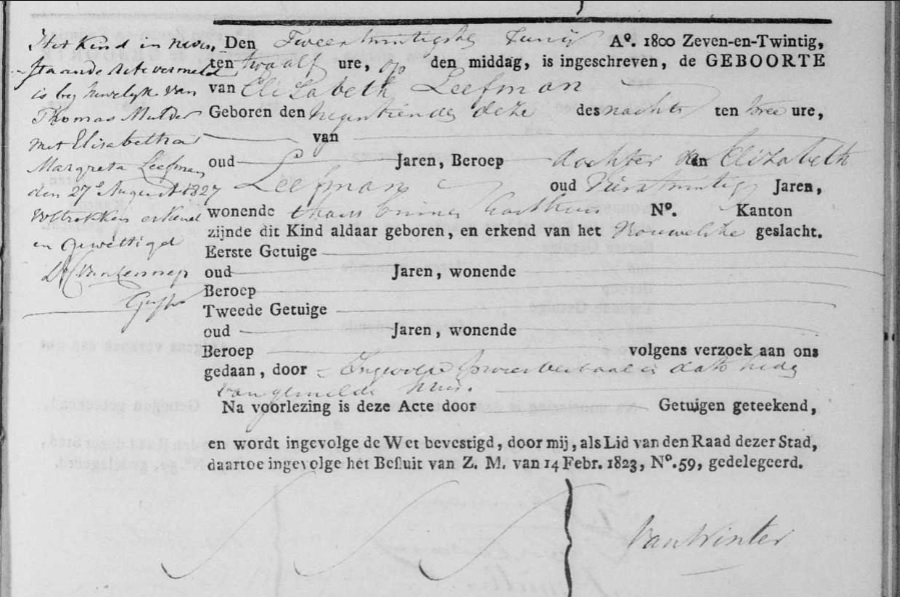 Het Kind in neven
staande Acte vermeld
is bij huwelijk van
Thomas Mulder
met Elisabetha
Margreta Leefman
den 27e Augustus 1827
voltrokken erkend
en gewettigd
Den Tweeentwintigste Junij Ao. 1800 Zeven-en-Twintig,
ten twaalf ure, op den middag, is ingeschreven, de GEBOORTE
van Elizabeth Leefman
Geboren den negentiende deze des nachts ten twee ure,
van
oud Jaren, Beroep dochter van Elizabeth
Leefman oud Jaren,
wonende No. Kanton
zijnde dit Kind aldaar geboren, en erkend van het Vrouwelijke geslacht.
Eerste Getuige
oud Jaren, wonende
Beroep
Tweede Getuige
oud Jaren, wonende
Beroep volgens verzoek aan ons
gedaan, door Ingevolge proces verbaal in dato heden
van gemelde huis.
Na voorlezing is deze Acte door Getuigen geteekend,
en wordt ingevolge de Wet bevestigd, door mij, als Lid van den Raad dezer Stad,
daartoe ingevolge het Besluit van Z. M. van 14 Febr. 1823, No. 59, gedelegeerd.
Van Winter